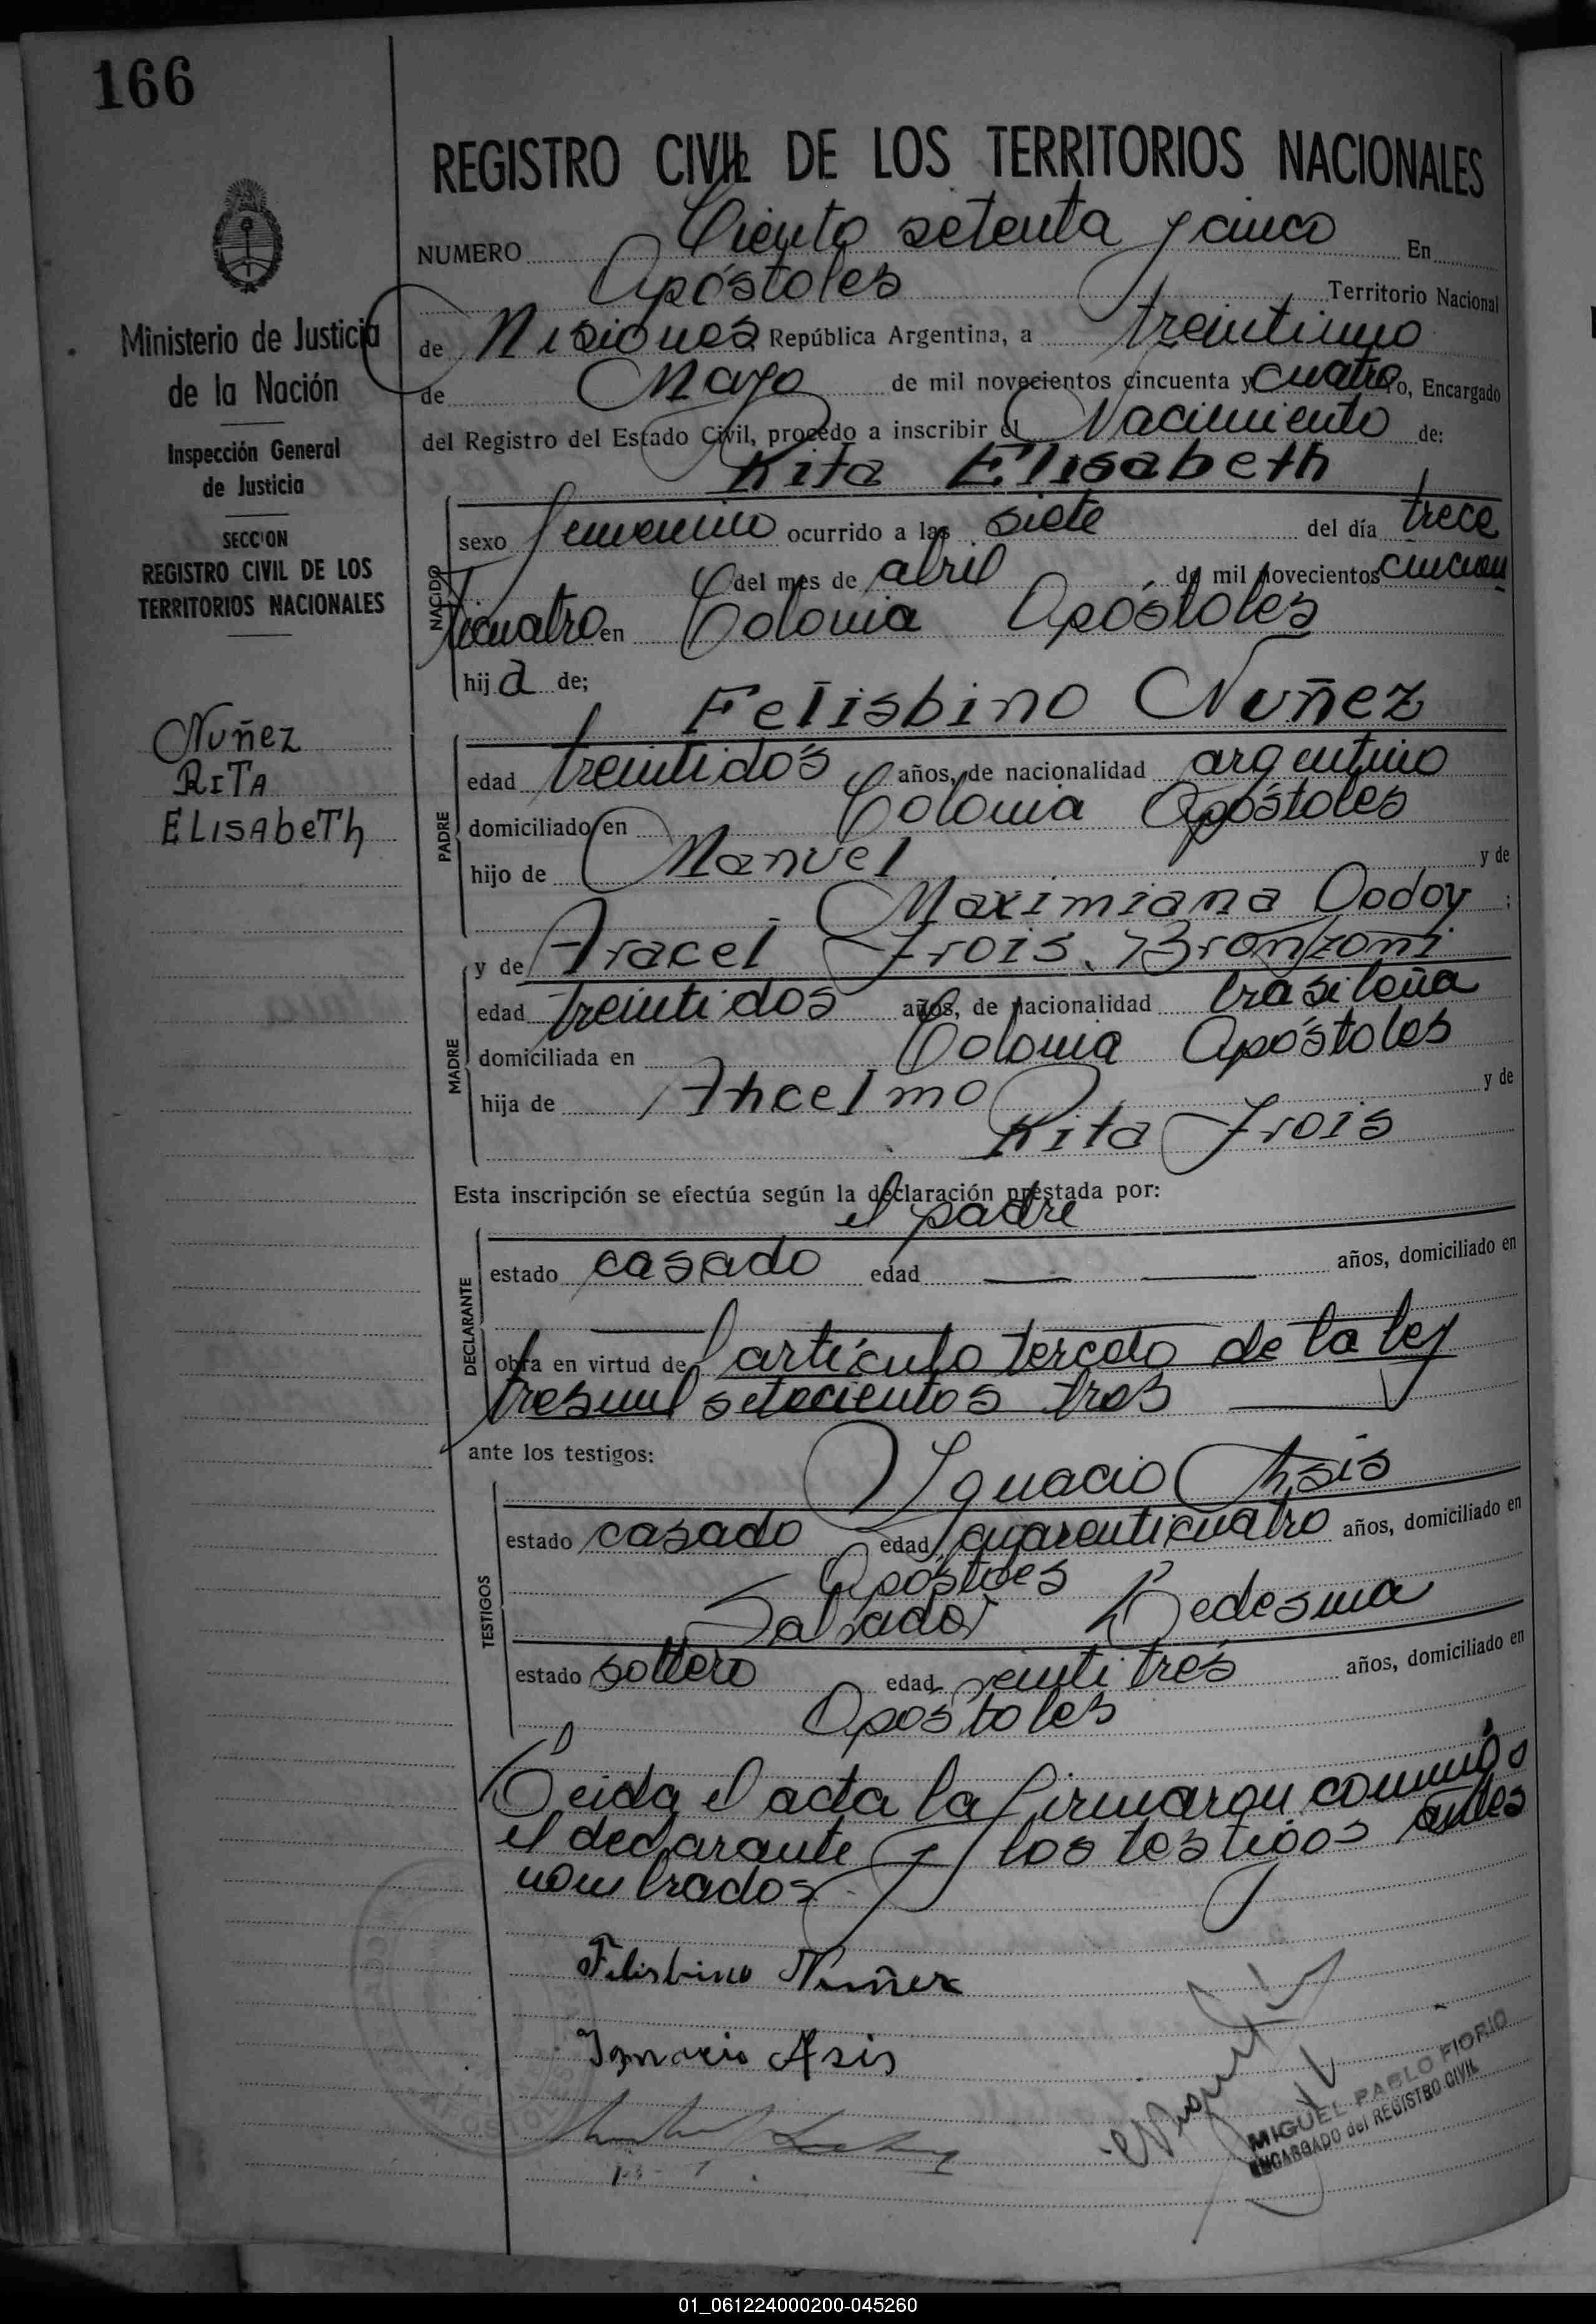 166
REGISTRO CIVIL DE LOS TERRITORIOS NACIONALES
NUMERO Ciento setenta y cinco En
Apóstoles Territorio Nacional
de Misiones República Argentina, a treintiuno
de Mayo de mil novecientos cincuenta y cuatro yo, Encargado
del Registro del Estado Civil, procedo a inscribir el Nacimiento de:
Rita Elisabeth
NACIDO
sexo femenino ocurrido a las siete del día trece
del mes de abril de mil novecientos cincuen
ticuatro en Colonia Apóstoles
hija de;
Felisbino Nuñez
PADRE
edad treintidós años, de nacionalidad argentino
domiciliado en Colonia Apóstoles
hijo de Manuel y de
Maximiana Godoy ;
y de Aracel Frois Bronzoni
MADRE
edad treintidos años, de nacionalidad brasileña
domiciliada en Colonia Apóstoles
hija de Ancelmo y de
Rita Frois
Esta inscripción se efectúa según la declaración prestada por:
el padre
DECLARANTE
estado casado edad años, domiciliado en
obra en virtud del artículo tercero de la ley
tresmil setecientos tres
ante los testigos:
Ygnacio Asis
TESTIGOS
estado casado edad cuarenticuatro años, domiciliado en
Apóstoes
Salvador Ledesma
estado soltero edad veintitrés años, domiciliado en
Apóstoles
Leida el acta la firmaron conmigo
el declarante y los testigos antes
nombrados
Felisbino Nuñez
Ignacio Asis
MIGUEL PABLO FIORIO
ENCARGADO del REGISTRO CIVIL
Ministerio de Justicia
de la Nación
Inspección General
de Justicia
SECCION
REGISTRO CIVIL DE LOS
TERRITORIOS NACIONALES
Nuñez
RITA
ELISAbeTh
01_061224000200-045260